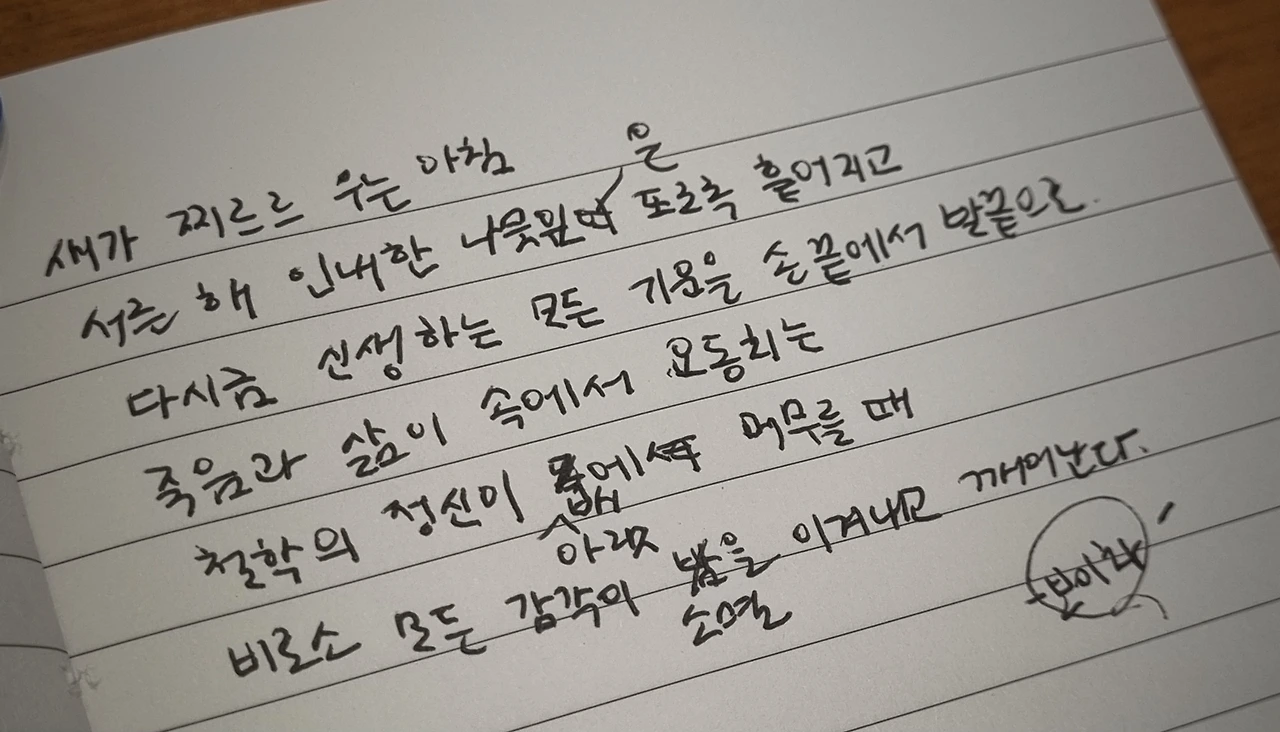 새가 찌르르 우는 아침
은
서른 해 인내한 나뭇잎 또르륵 흩어지고
다시금 신생하는 모든 기운을 손끝에서 발끝으로.
죽음과 삶이 속에서 요동치는
철학의 정신이 에서 머무를 때
아랫배
비로소 모든 감각의 밤을 이겨내고 깨어난다.
소멸